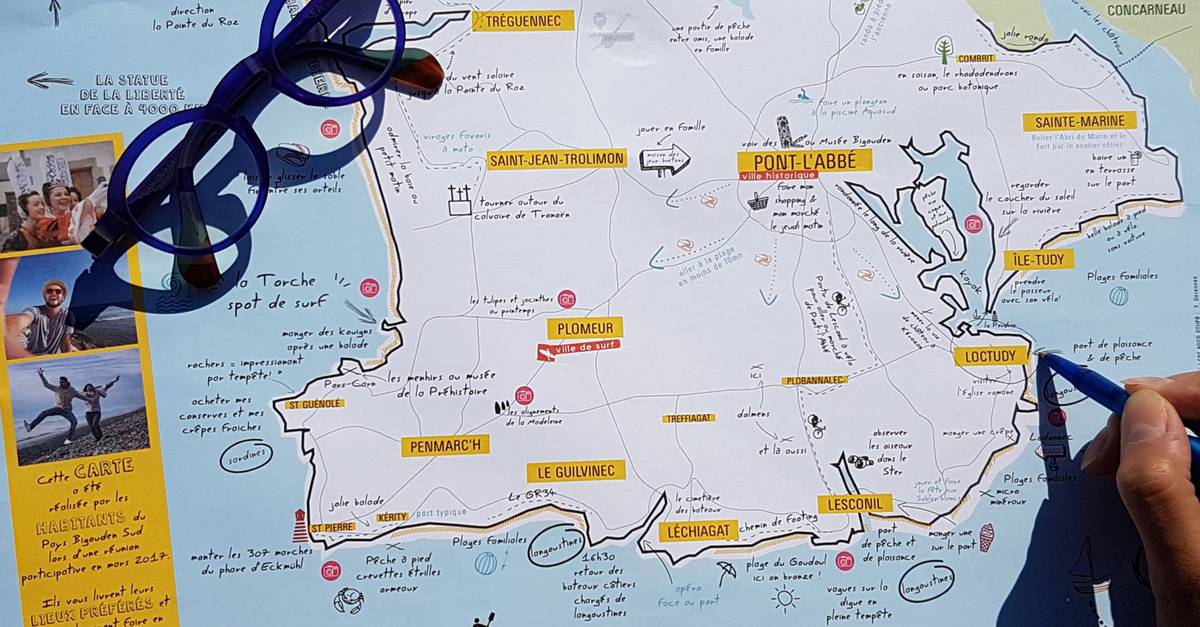 direction
la Pointe du Roz
LA STATUE
DE LA LIBERTÉ
EN FACE À 4000
TRÉGUENNEC
du vent solaire
jusqu'à la Pointe du Roz
une partie de pêche
entre amis, une balade
en famille
CONCARNEAU
jolie rando
COMBRIT
en saison, le rhododendrons
au parc botanique
faire un plongeon
à la piscine Aquasud
virages favoris
à moto
jouer en famille
maison des
jeux bretons
SAINT-JEAN-TROLIMON
voir des
au Musée Bigouden
PONT-L'ABBÉ
ville historique
faire mon
shopping &
mon marché
le jeudi matin
SAINTE-MARINE
Relier l'Abri du Marin et le
fort par le sentier côtier
boire un
en terrasse
sur le port
regarder
le coucher du soleil
sur la rivière
tourner autour du
calvaire de Tronoën
randonnée le long de la rivière
belle balade à pied
ou à vélo
sans voiture
ÎLE-TUDY
prendre
le passeur
avec son vélo!
Plages familiales
kayak
aller à la plage
en moins de 10mn
la Torche
spot de surf
les tulipes et jacinthes
au printemps
PLOMEUR
ville de surf
manger des kouigns
après une balade
rochers = impressionant
par tempête!
Pors-Carn
les menhirs au musée
de la Préhistoire
LOCTUDY
port de plaisance
& de pêche
visiter
l'Église romane
ici
PLOBANNALEC
ST GUÉNOLÉ
acheter mes
conserves et mes
crêpes fraîches
sardines
les alignements
de la Madeleine
TREFFIAGAT
dolmens
et là aussi
observer
les oiseaux
dans le
Ster
manger une crêpe
PENMARC'H
LE GUILVINEC
Plages familiales
micro
minéraux
jolie balade
Le GR34
le cimetière
des bateaux
LESCONIL
ST PIERRE
KÉRITY
port typique
LÉCHIAGAT
chemin de footing
port
de pêche et
de plaisance
manger une
sur le port
monter les 307 marches
du phare d'Eckmühl
Pêche à pied
crevettes étrilles
ormeaux
Plages familiales
langoustines
16h30
retour des
bateaux côtiers
chargés de
langoustines
apéro
face au port
plage du Goudoul
ici on bronze !
vagues sur la
digue en
pleine tempête
langoustines
Cette CARTE
a été
réalisée par les
HABITANTS du
Pays Bigouden Sud
lors d'une réunion
participative en mars 2017.
Ils vous livrent leurs
LIEUX PRÉFÉRÉS et